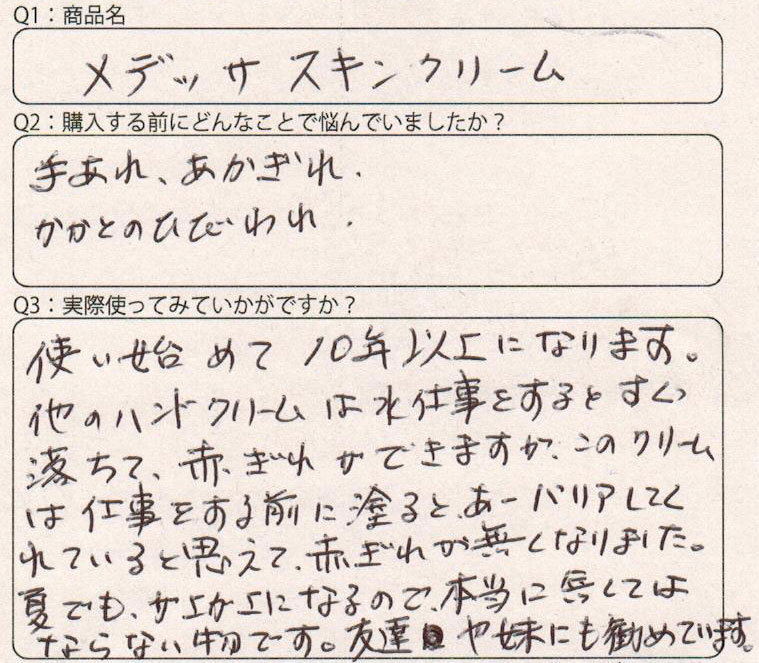 Q1：商品名
メデッサ スキンクリーム
Q2：購入する前にどんなことで悩んでいましたか？
手あれ、あかぎれ.
かかとのひびわれ.
Q3：実際使ってみていかがですか？
使い始めて10年以上になります。
他のハンドクリームは水仕事をするとすぐ
落ちて、赤ぎれができますが、このクリーム
は仕事をする前に塗ると、あーバリアしてく
れていると思えて、赤ぎれが無くなりました。
夏でも、サカサカになるので、本当に無くては
ならない物です。友達や妹にも勧めています。